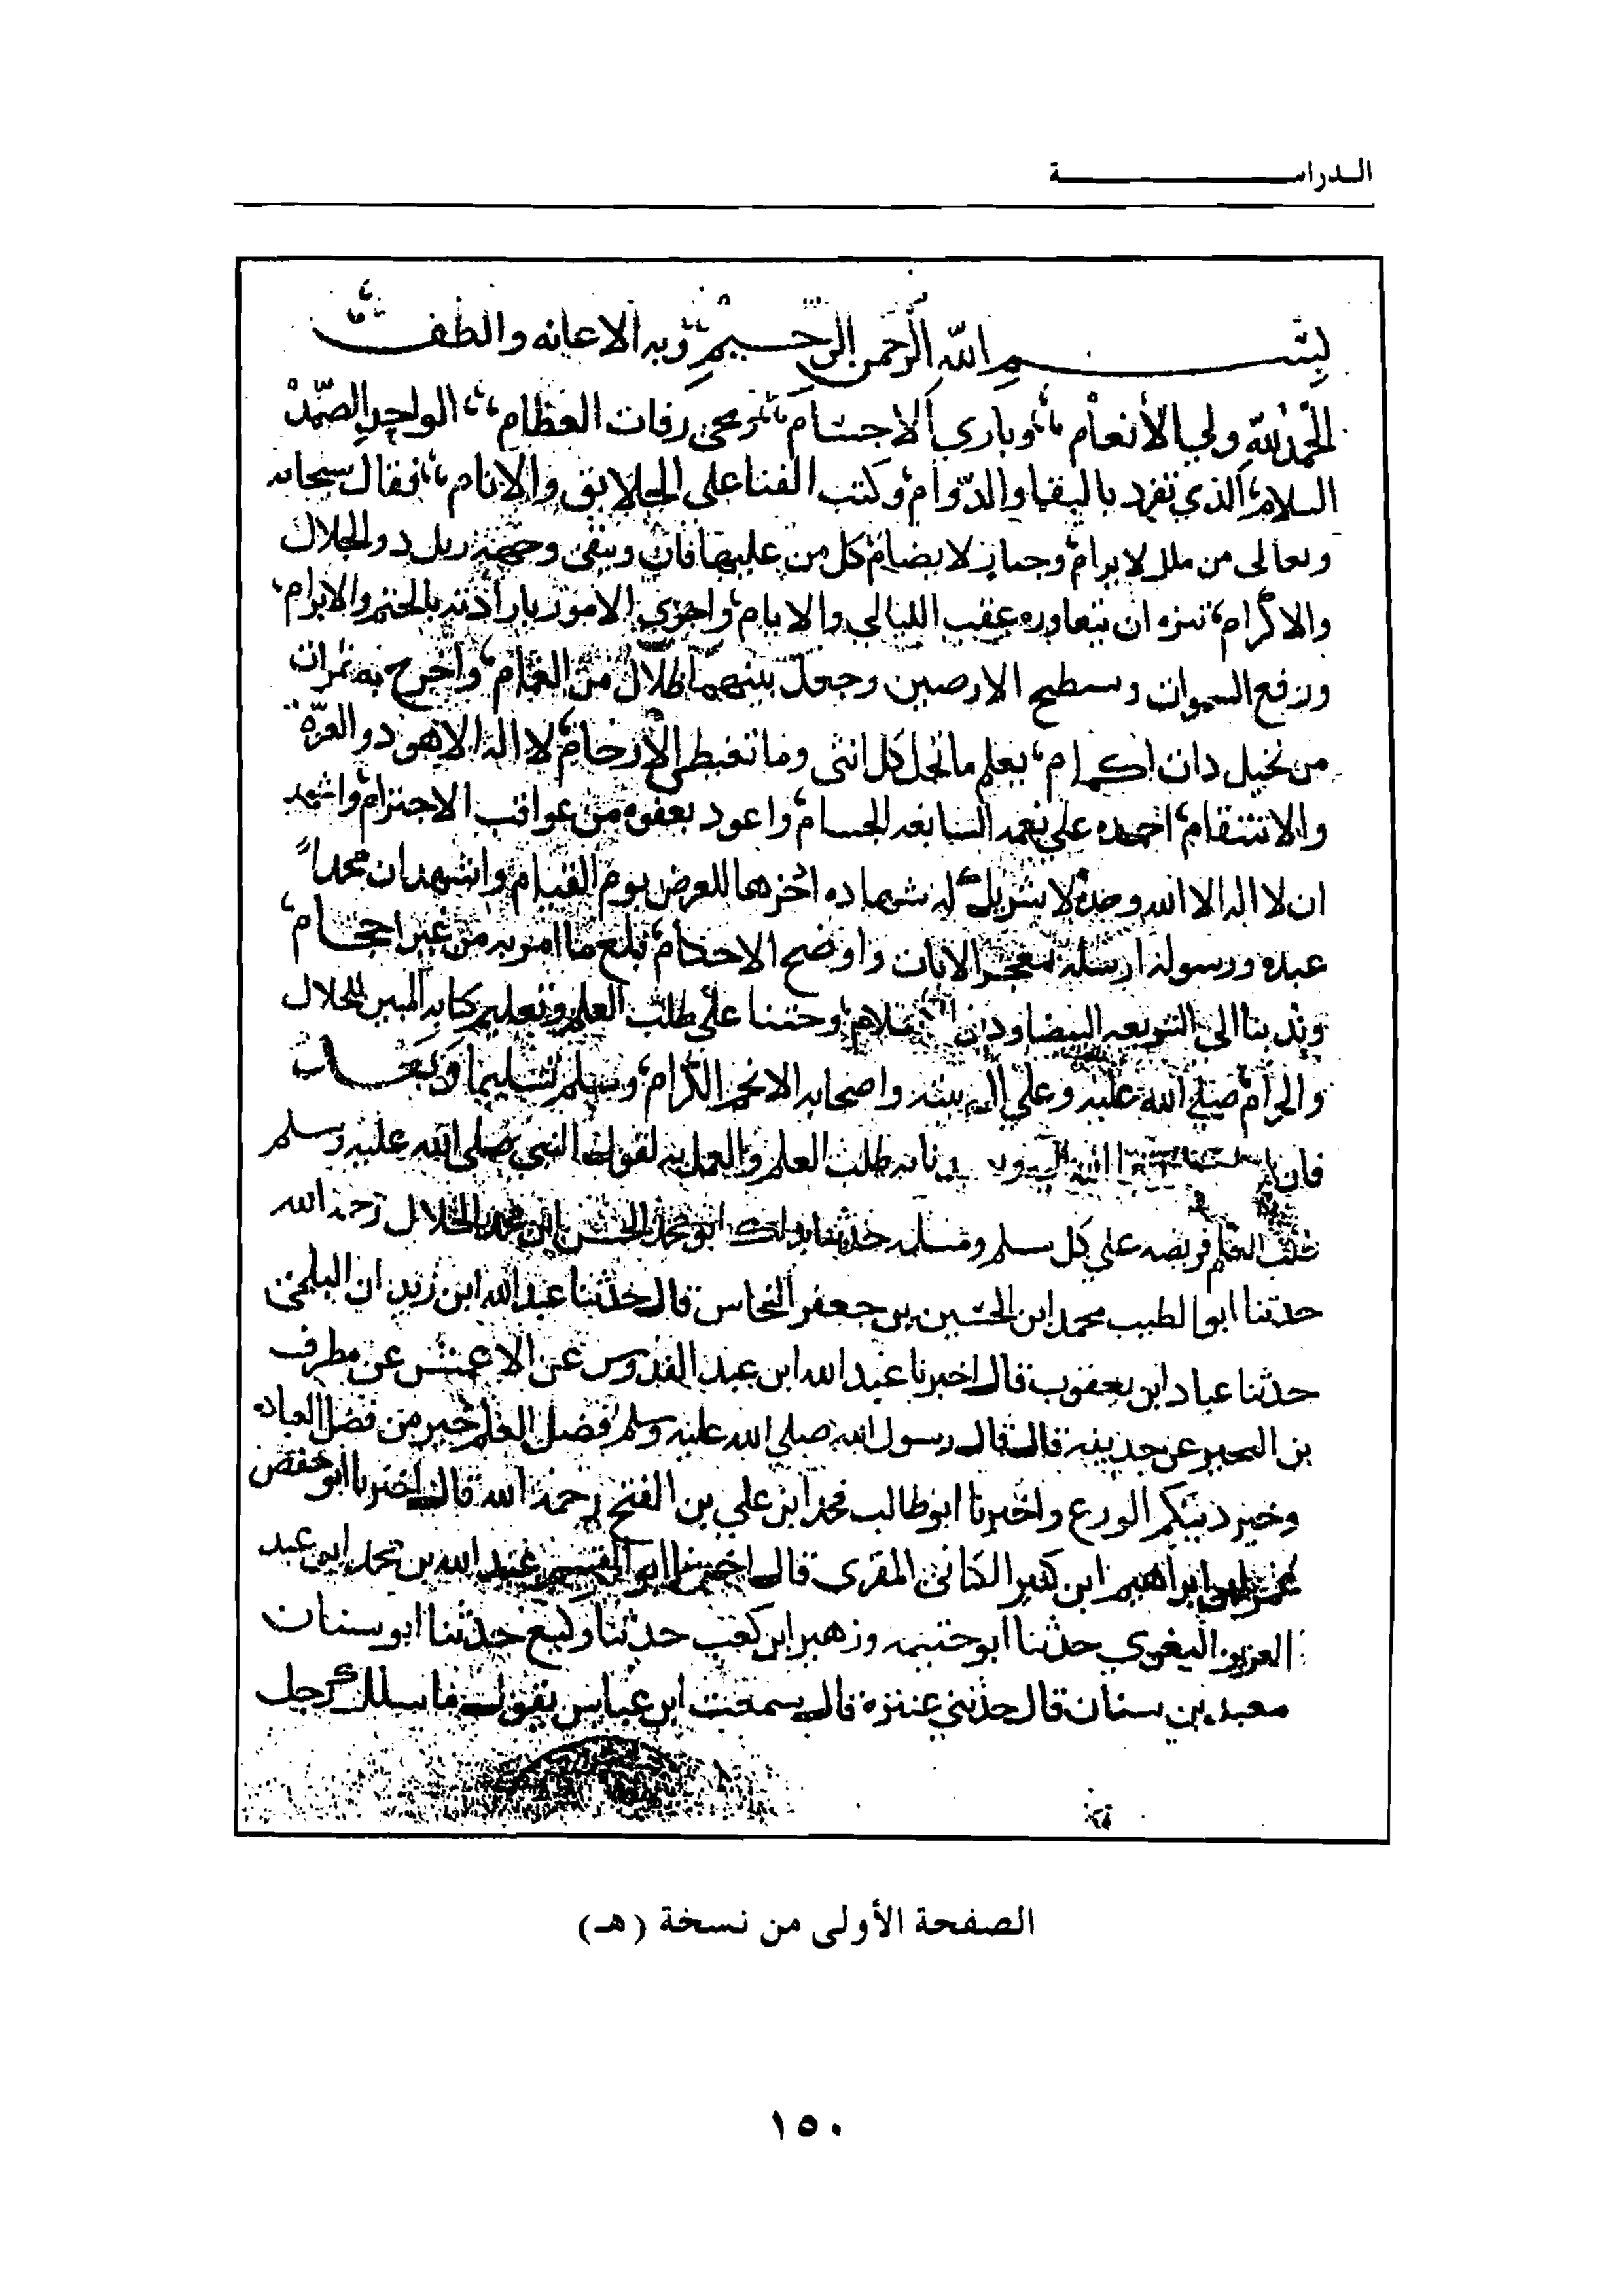 الـدراسـة
بسم الله الرحمن الرحيم وبه الاعانه والطف
الحمدلله ولي الأنعام وباري الاجسام ومحي رفات العظام الواحد الصمد
السلام الذي تفرد بالبقا والدوام وكتب الفنا على الخلايق والانام فقال سبحانه
وتعالى من ملك لا يرام وجبار لا يضام كل من عليها فان ويبقى وجهه ربك ذو الجلال
والاكرام تنزه ان تتعاوره عقب الليالي والايام واجزي الامور بارادته بالحتم والابرام
ورفع السموات وسطح الارضين وجعل بينهما ظلال من الغمام واخرج به ثمرات
من نخيل ذات اكمام يعلم ما تحمل كل انثى وما تغيظ الارحام لا اله الا هو ذو العزة
والانتقام احمده على نعمه السابغه الجسام واعوذ بعفوه من عواقب الاجترام واشهد
ان لا اله الا الله وحده لا شريك له شهاده ادخرها للعرض يوم القيام واشهد ان محمدا
عبده ورسوله ارسله بمعجز الايات واوضح الاحكام بلغ ما امر به من غير احجام
وندبنا الى الشريعه البيضا ودين وحثنا على طلب العلم وتعليم كتابه المبين للحلال
والحرام صلى الله عليه وعلى اله بيته واصحابه الانجم الكرام وسلم تسليما وبعد
فان طلب العلم والعمل به لقول النبي صلى الله عليه وسلم
طلب العلم فريضه على كل مسلم ومسلمه حدثنا بذلك ابو محمد الحسن ابن محمد الخلال رحمه الله
حدثنا ابوا لطيب محمد ابن الحسين بن جعفر النخاس قال حدثنا عبد الله ابن زيدان البلخي
حدثنا عباد ابن يعقوب قال اخبرنا عبد الله ابن عبد القدوس عن الاعمش عن مطرف
بن السحير عن حذيفه قال قال رسول الله صلي الله عليه وسلم فضل العلم خير من فضل العباده
وخير دينكم الورع واخبرنا ابو طالب محمد ابن علي بن الفتح رحمه الله قال اخبرنا ابو حفض
عمر ابن ابراهيم ابن كثير الكتاني المقري قال اخبرنا ابو القسم عبد الله بن محمد ابن عبد
العزيز البغوي حدثنا ابو خثيمه وزهير ابن كعب حدثنا وكيع حدثنا ابو سنان
معبد بن سنان قال حدثني عنتزة قال سمعت ابن عباس يقول ما سلك رجل
الصفحة الأولى من نسخة (هـ)
١٥٠